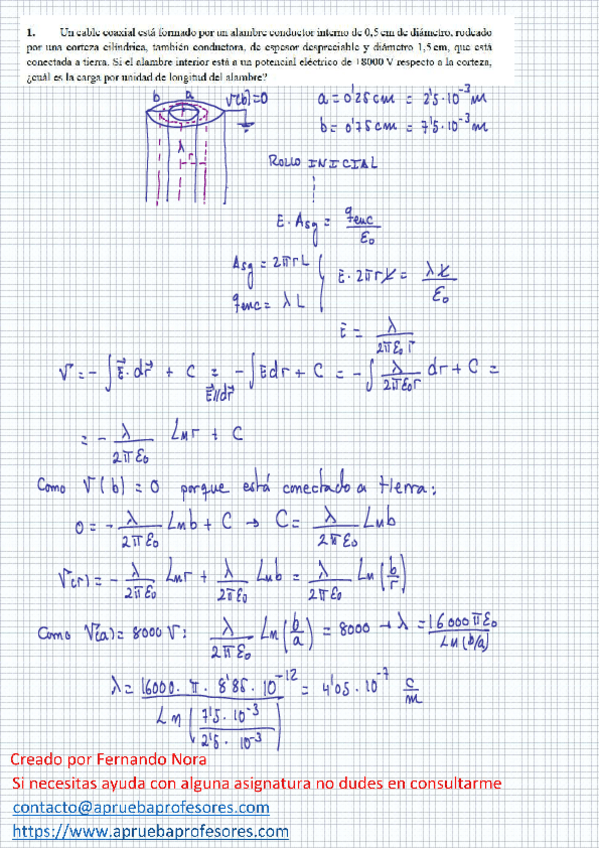 1. Un cable coaxial está formado por un alambre conductor interno de 0,5 cm de diámetro, rodeado
por una corteza cilíndrica, también conductora, de espesor despreciable y diámetro 1,5 cm, que está
conectada a tierra. Si el alambre interior está a un potencial eléctrico de +8000 V respecto a la corteza,
¿cuál es la carga por unidad de longitud del alambre?
b a V(b)=0
λ
r
a = 0'25 cm = 2'5·10⁻³ m
b = 0'75 cm = 7'5·10⁻³ m
ROLLO INICIAL
E · Asg = qenc/ε₀
Asg = 2πrL
qenc = λL
E · 2πrL = λL/ε₀
E = λ/2πε₀r
V = -∫E⃗·dr⃗ + C = -∫Edr + C = -∫λ/2πε₀r dr + C =
E⃗//dr⃗
= -λ/2πε₀ Ln r + C
Como V(b) = 0 porque está conectado a tierra:
0 = -λ/2πε₀ Lnb + C → C = λ/2πε₀ Lnb
V(r) = -λ/2πε₀ Lnr + λ/2πε₀ Lnb = λ/2πε₀ Ln(b/r)
Como V(a) = 8000 V: λ/2πε₀ Ln(b/a) = 8000 → λ = 16000πε₀/Ln(b/a)
λ = 16000·π·8'85·10⁻¹²/Ln(7'5·10⁻³/2'5·10⁻³) = 4'05·10⁻⁷ C/m
Creado por Fernando Nora
Si necesitas ayuda con alguna asignatura no dudes en consultarme
contacto@apruebaprofesores.com
https://www.apruebaprofesores.com